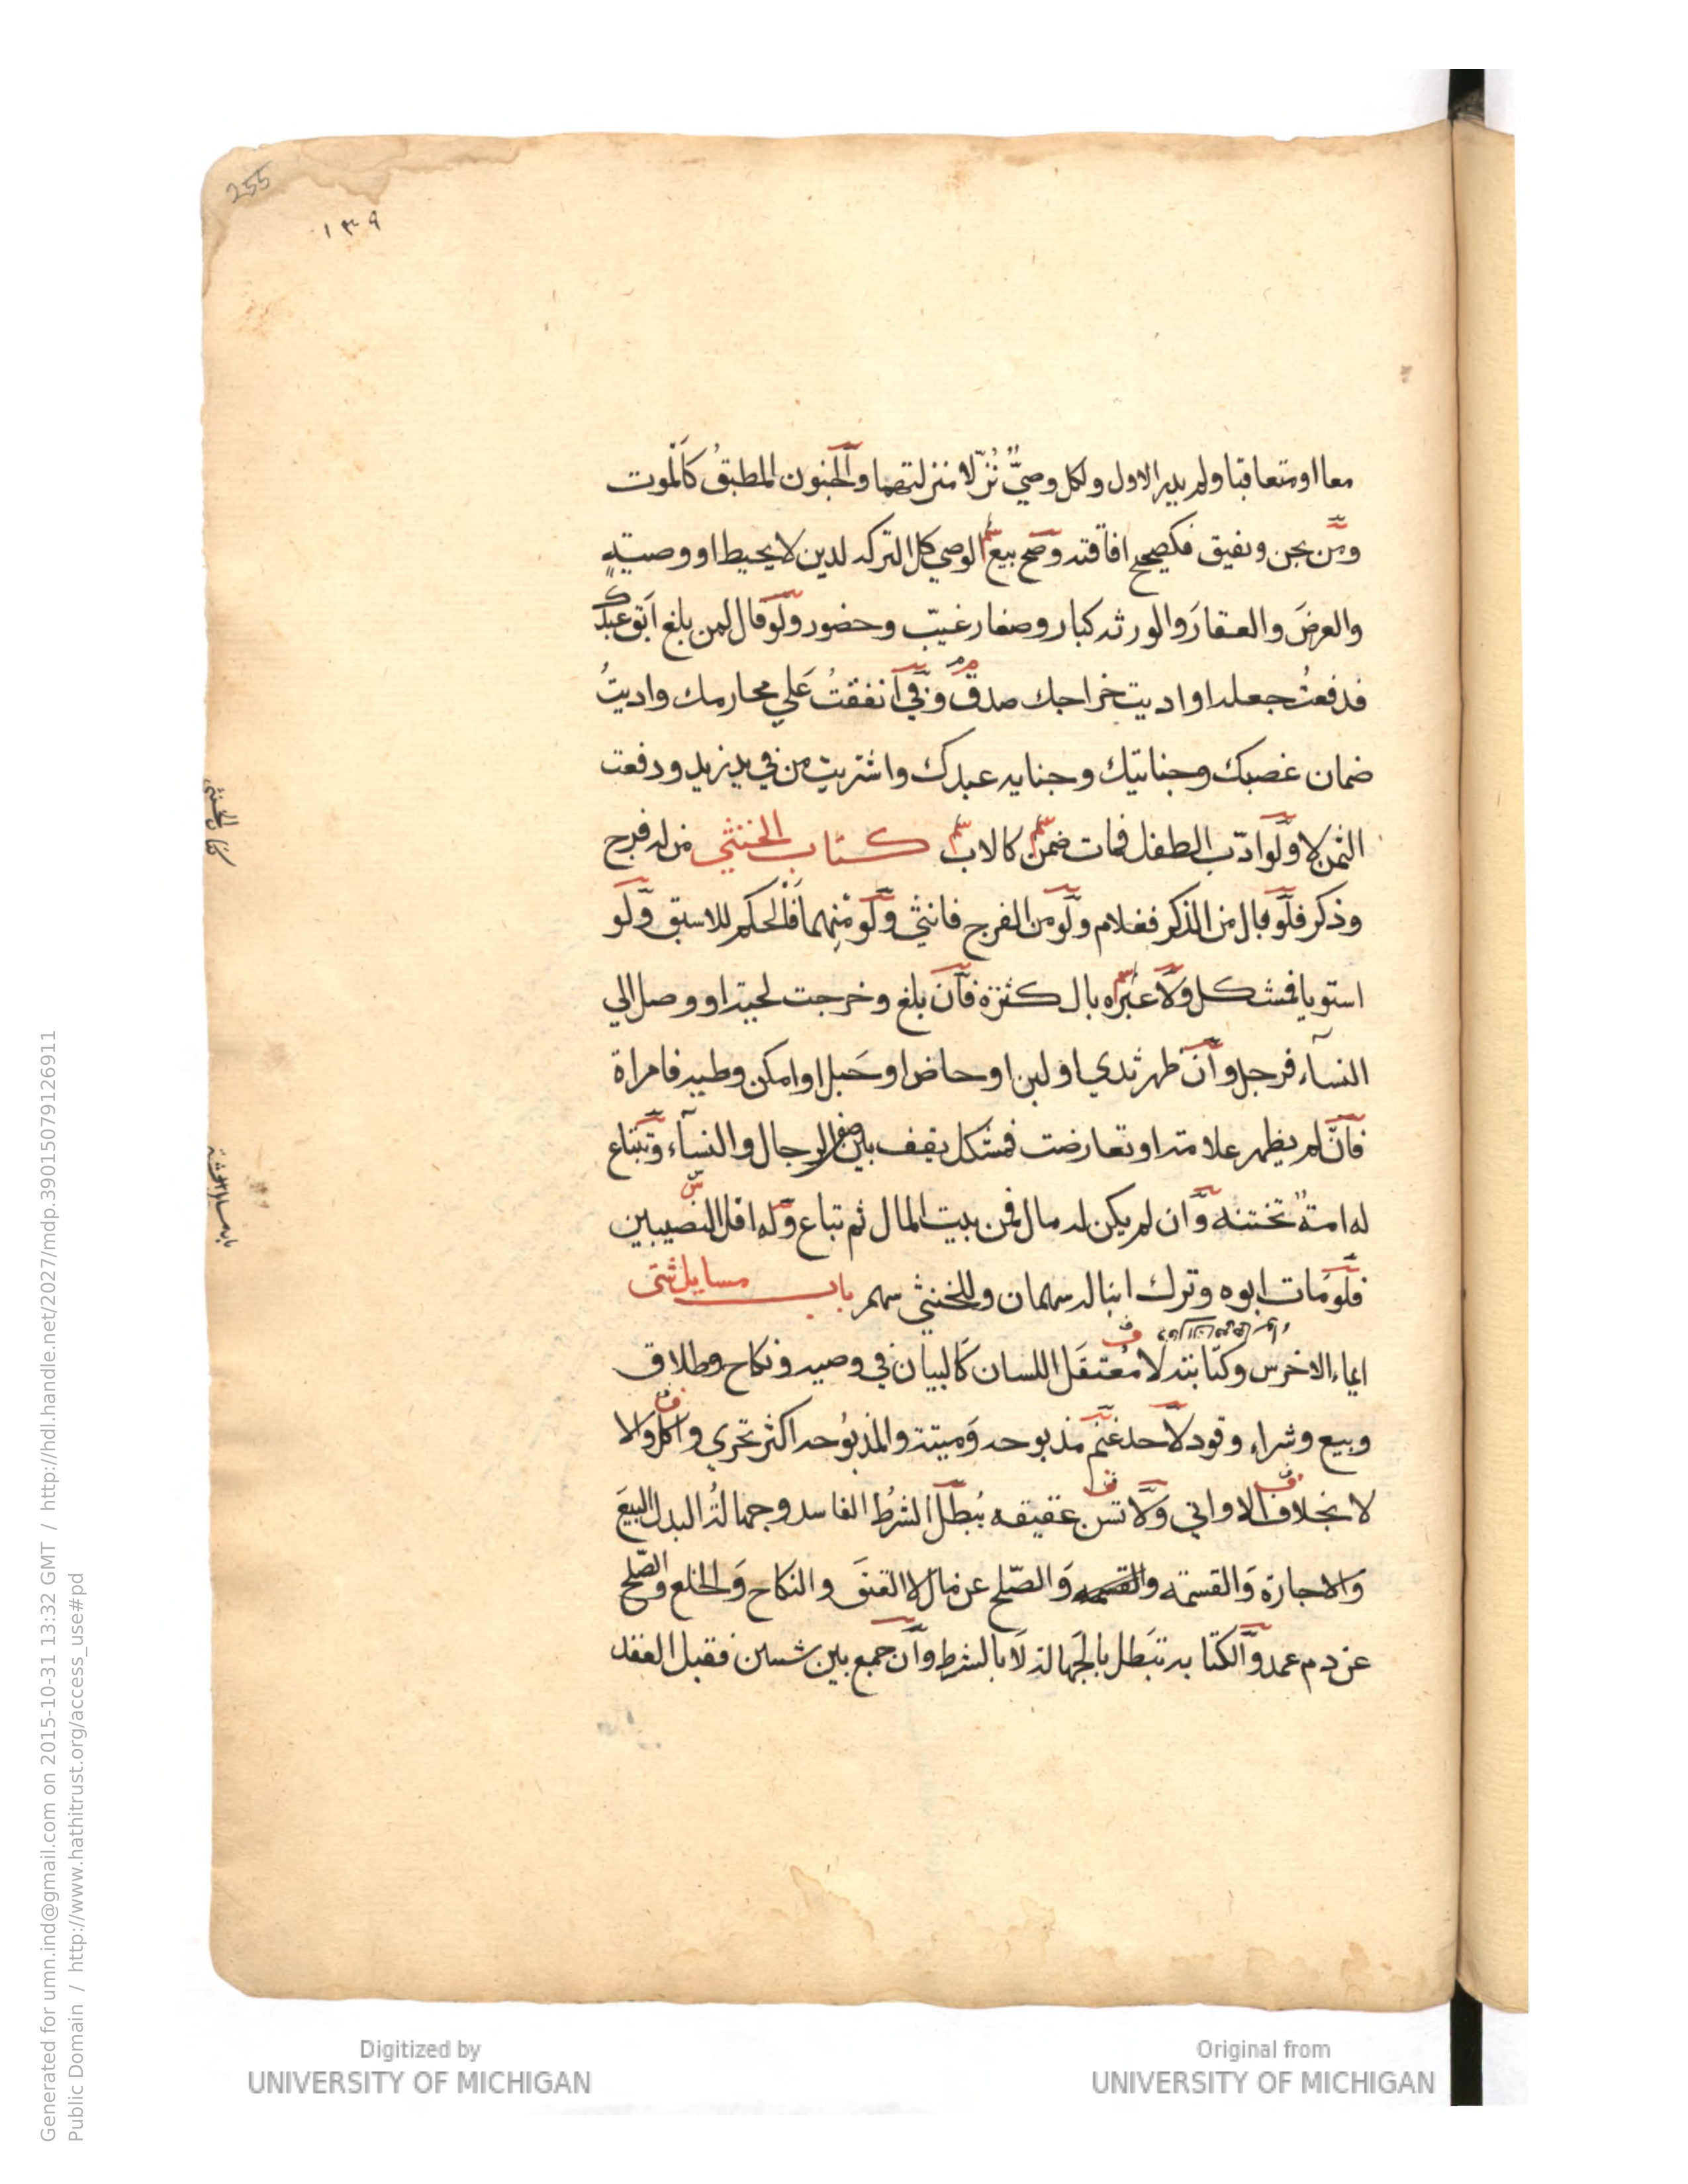 255
١٣٩
معا او متعاقبا ولم يدر الاول ولكل وصيٌّ نُزّلا منزلتهما وٱلجنون المطبقُ كَٱلموت
ومَن يجن ويفيق فكصحيح افاقته وصَح بيع الوصي كل التركه لدين لا يحيط او وصيته
والعرضَ والعقارَ والورثه كبار وصغار غيّب وحضور ولَو قال لمن بلغ اَبَق عبدك
فدفعتُ جعله او اديت خراجك صدق وَفي اَنفقتُ عَلي محارمك واديتُ
ضمان غصبك وجنايتك وجنايه عبدك واشتريت من في يد زيد ودفعت
الثمن لا ولَو ادّب الطفل فمات ضمن كالاب كتاب الخنثي من له فرج
وذكر فلَو بال من الذكر فغلام ولَو من الفرج فانثي ولَو منهما فَالحكم للاسبق ولَو
استويا فمشكل ولا عبره بالكثرة فاَن بلغ وخرجت لحيته او وصل الي
النسآء فرجل واَن ظهر ثدي او لبن او حاض او حَبل او امكن وطيه فامراة
فاَن لم يظهر علامته او تعارضت فمشكل يقف بين صف الرجال والنسآء وتبتاع
له امةٌ تختنه واَن لم يكن له مال فمن بيت المال ثم تباع وَله اقل النصيبين
فلَو مَات ابوه وترك ابنا له سهمان وللخنثي سهم باب مسايل شتى
ايماء الاخرس وكتابته لا معتقَل اللسان كَالبيان في وصيه ونكاح وطلاق
وبيع وشراء وقود لا حد غنم مذبوحه وَميتة والمذبُوحه اكثر تحري واكل والا
لا بخلاف الاواني وَلا تسن عقيقه يُبطل الشرطُ الفاسد وجهالةُ البدل البيعَ
وَالاجارة وَالقسمة وَالصّلح عن مال لا العتقَ والنكَاح وَالخلع والصّلح
عن دم عمد وٱلكتابه تبَطل بالجَهالة لَا بالشرط واَن جمع بين شيين فقبل العقد
كتاب الخنثي
باب مسايل شتى
Digitized by
UNIVERSITY OF MICHIGAN
Original from
UNIVERSITY OF MICHIGAN
Generated for umn.ind@gmail.com on 2015-10-31 13:32 GMT / http://hdl.handle.net/2027/mdp.39015079126911
Public Domain / http://www.hathitrust.org/access_use#pd